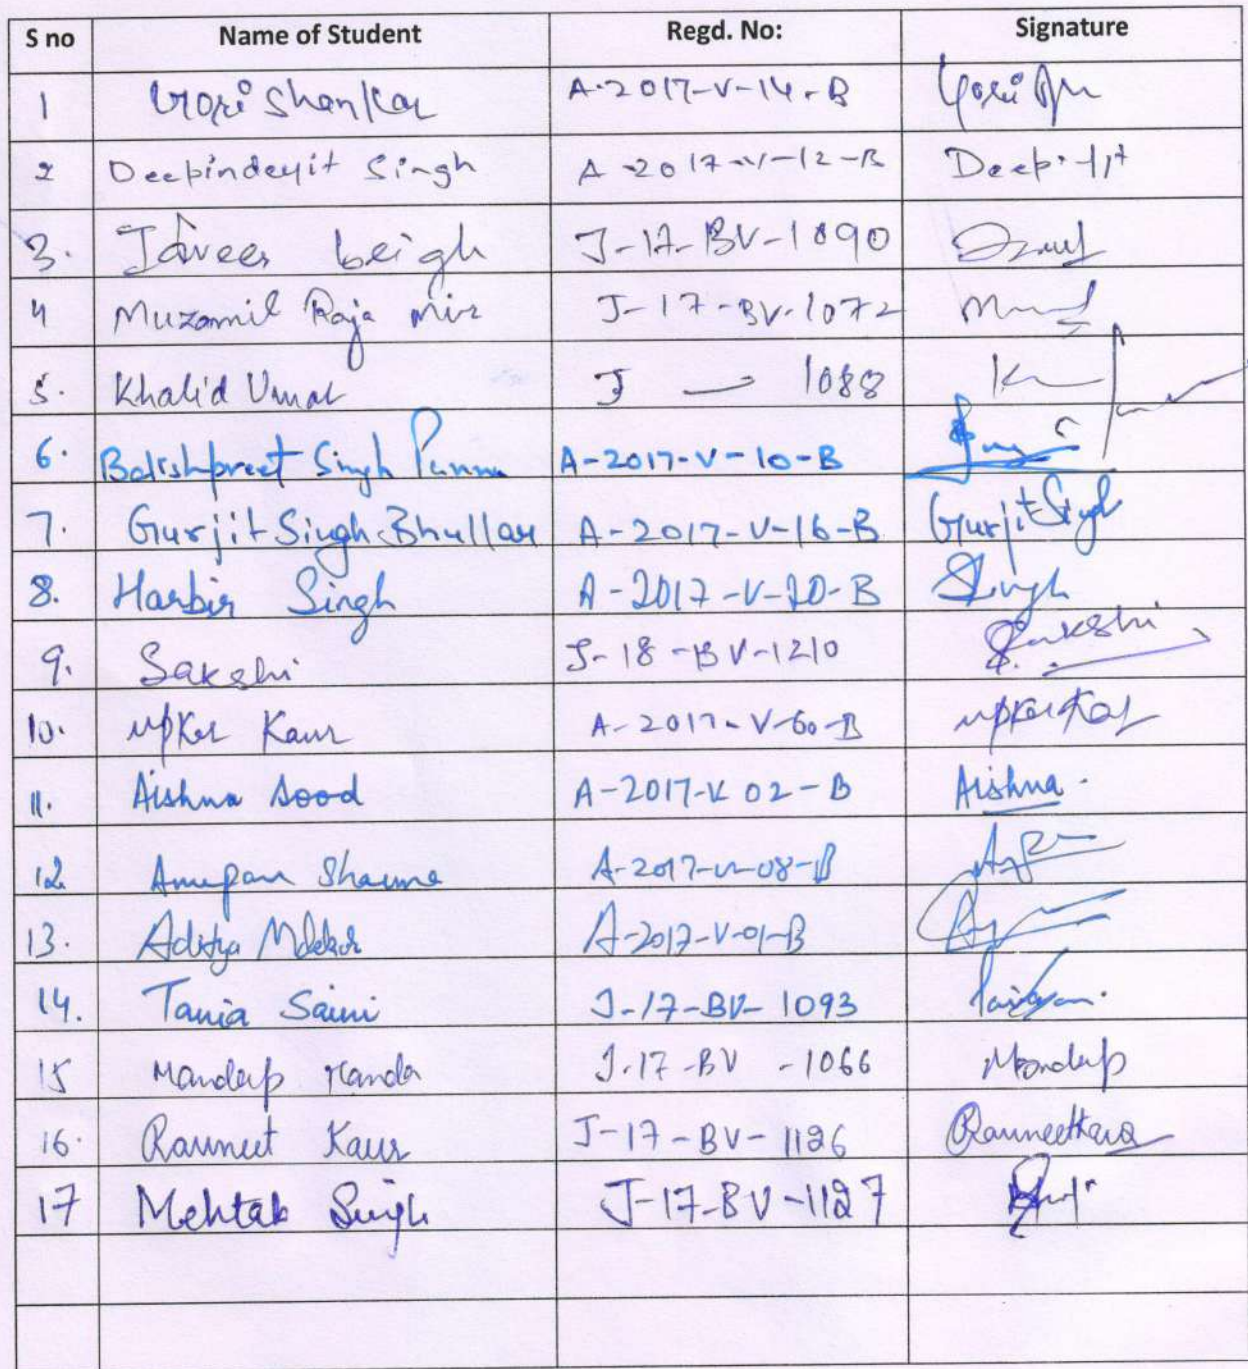 S no Name of Student Regd. No: Signature
1 Gori Shankar A-2017-V-14-B Gori
2 Deepinderjit Singh A-2017-V-12-B
3. Javees beigh J-17-BV-1090
4 Muzamil Raja Mir J-17-BV-1072
5. Khalid Umar J — 1088
6. Singh A-2017-V-10-B
7. Gurjit Singh Bhullar A-2017-V-16-B Gurjit Singh
8. Harbir Singh A-2017-V-20-B Singh
9. Sakshi J-18-BV-1210 Sakshi
10. Upker Kaur A-2017-V-60-B Upker Kaur
11. Aishna Sood A-2017-V 02-B Aishna.
12 Anupam Sharma A-2017-V-08-B
13. Aditya A-2017-V-01-B
14. Tania Saini J-17-BV-1093
15 Mandeep Nanda J-17-BV-1066 Mandeep
16. Ravneet Kaur J-17-BV-1126 Ravneet Kaur
17 Mehtab Singh J-17-BV-1127